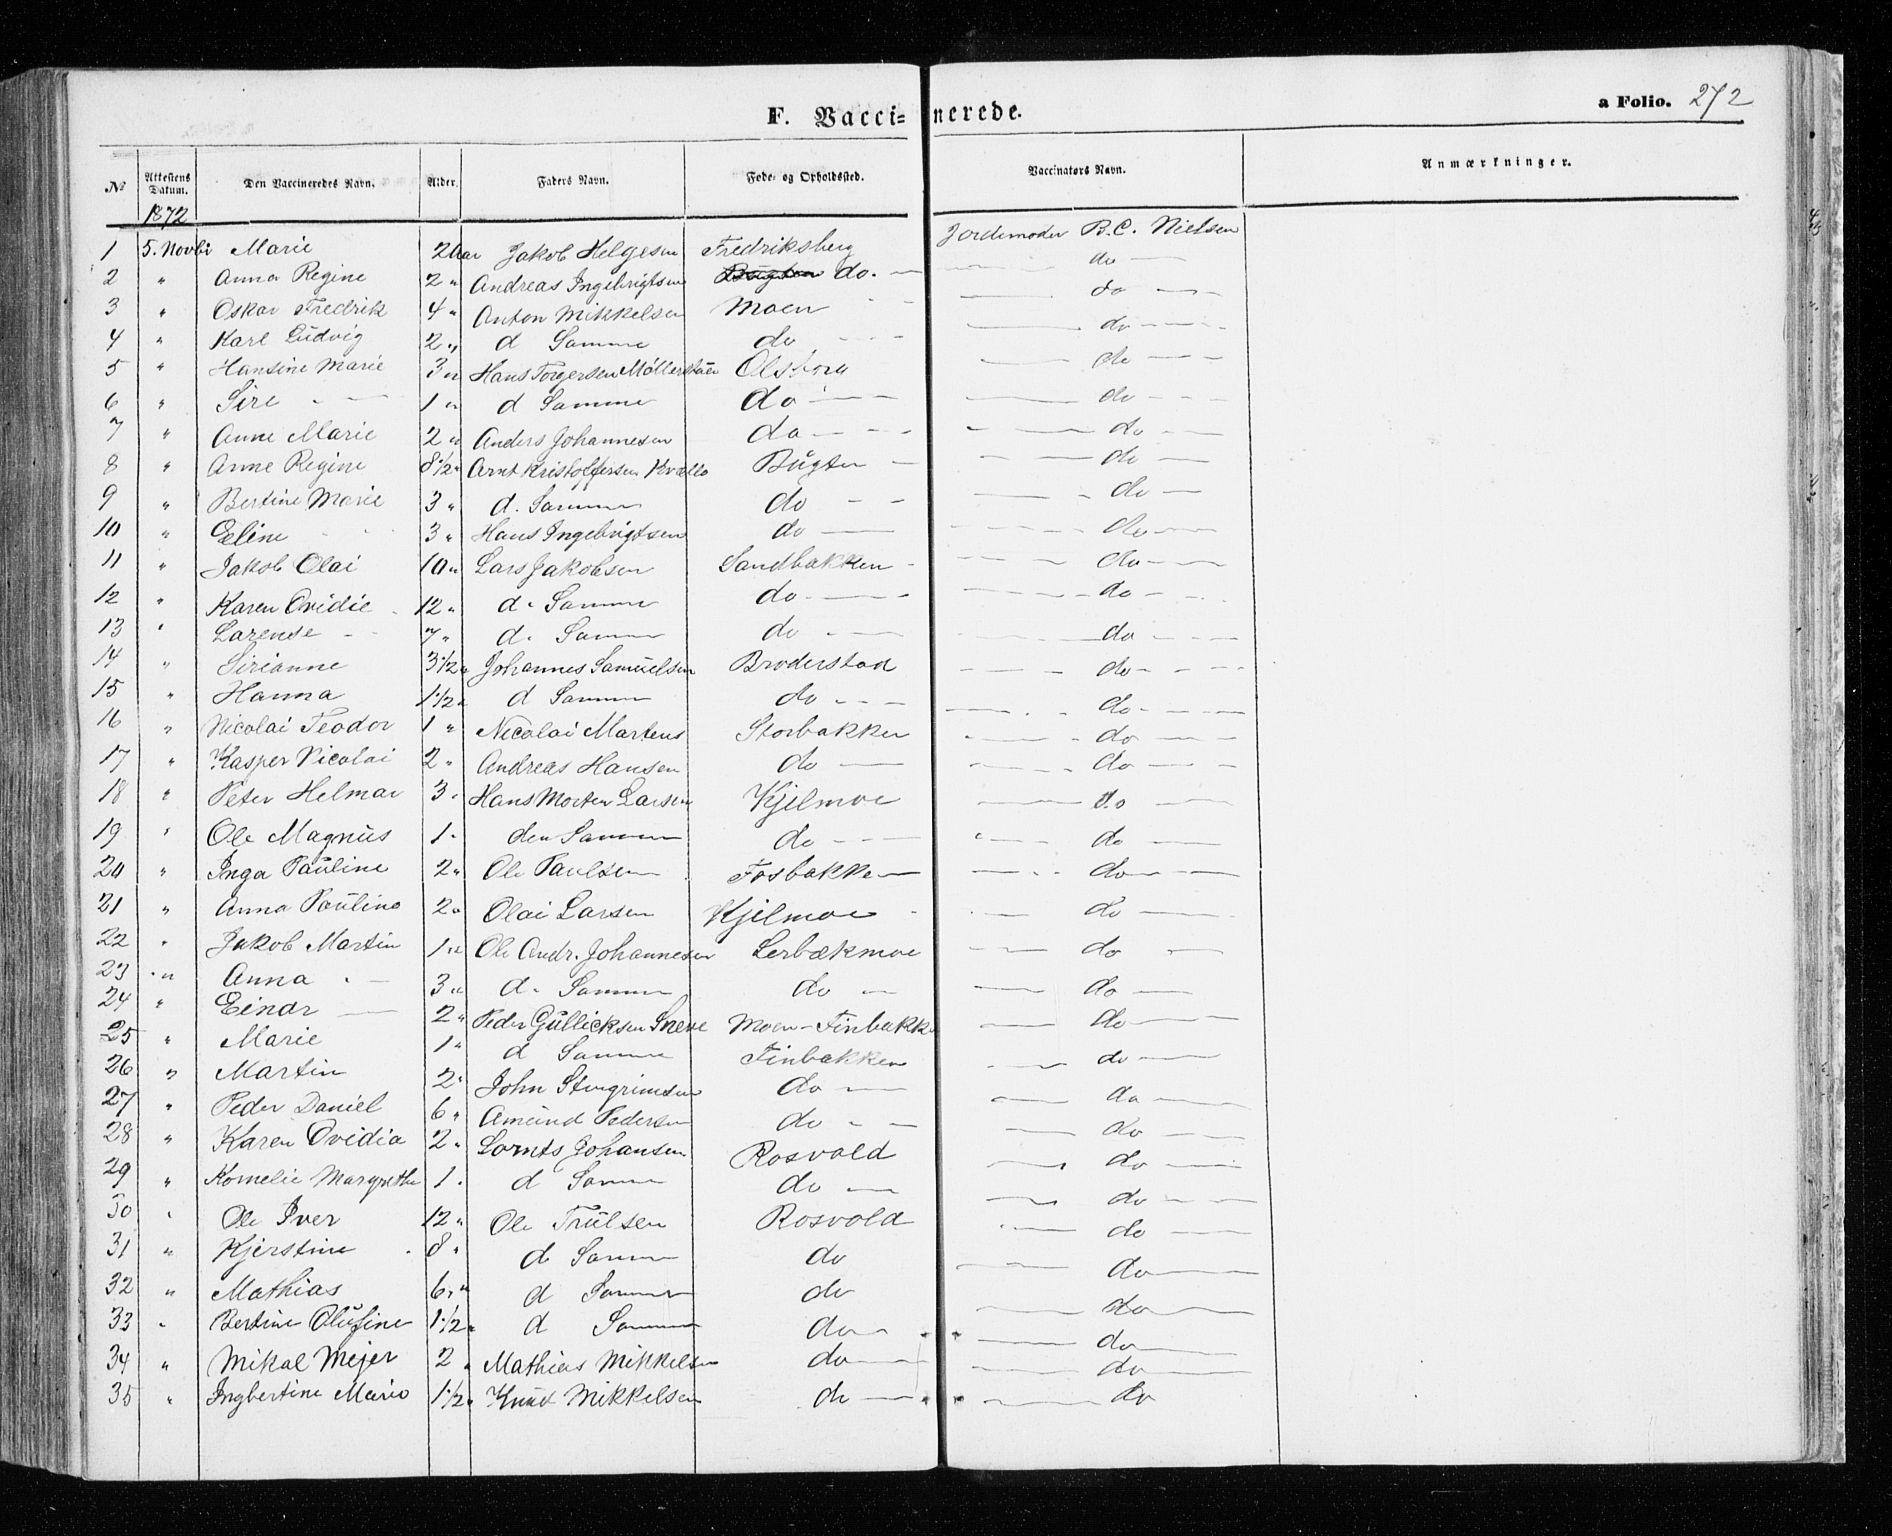 F. Vaccinerede.
a Folio. 272
No Attestens Datum. Den Vaccineredes Navn. Alder. Faders Navn. Føde- og Opholdssted. Vaccinators Navn. Anmærkninger.
1872
1 5. Novbr Marie 2 aar Jakob Helgesen Fredriksberg Jordemoder B.C. Nielsen
2 " Anna Regine 2 " Andreas Ingebrigtsen Bugten do. — do —
3 " Oskar Fredrik 4 " Anton Mikkelsen Moen — do —
4 " Karl Ludvig 2 " d Samme do — do —
5 " Hansine Marie 3 " Hans Torgersen Olsborg — do —
6 " Sire — 1 " d Samme do — do —
7 " Anne Marie 2 " Anders Johannesen do — do —
8 " Anne Regine 8 1/2 " Arnt Kristoffersen Kvello Bugten — do —
9 " Bertine Marie 3 " d. Samme do — do —
10 " Eline 3 " Hans Ingebrigtsen do — do —
11 " Jakob Olai 10 " Lars Jakobsen Sandbakken — do —
12 " Karen Ovidie 12 " d. Samme do — do —
13 " Larense — 7 " d. Samme do — do —
14 " Sirianne 3 1/2 " Johannes Samuelsen Broderstad — do —
15 " Hanna 1 1/2 " d Samme do — do —
16 " Nicolai Teodor 1 " Nicolai Martens Storbakken — do —
17 " Kasper Nicolai 2 " Andreas Hansen do — do —
18 " Peter Helmar 3 " Hans Morten Larsen Kjelmoe — do —
19 " Ole Magnus 1 " den Samme do — do —
20 " Inga Pauline 2 " Ole Paulsen Fosbakken — do —
21 " Anna Pauline 2 " Olai Larsen Kjelmoe — do —
22 " Jakob Martin 1 " Ole Andr. Johannesen Lerbækmoe — do —
23 " Anna — 3 " d. Samme do — do —
24 " Einar — 2 " Peder Gullicksen Sneve Moen-Finbakk — do —
25 " Marie 1 " d Samme Finbakken — do —
26 " Martin 2 " John Stengrimsen do — do —
27 " Peder Daniel 6 " Amund Pedersen do — do —
28 " Karen Ovidia 2 " Lornts Johansen Rosvold — do —
29 " Kornelie Margrethe 1 " d Samme do — do —
30 " Ole Iver 12 " Ole Trulsen Rosvold — do —
31 " Kjerstine 8 " d Samme do — do —
32 " Mathias 6 " d Samme do — do —
33 " Bertine Olufine 1 1/2 " d Samme do — do —
34 " Mikal Mejer 2 " Mathias Mikkelsen do — do —
35 " Ingbertine Marie 1 1/2 " Knud Mikkelsen do — do